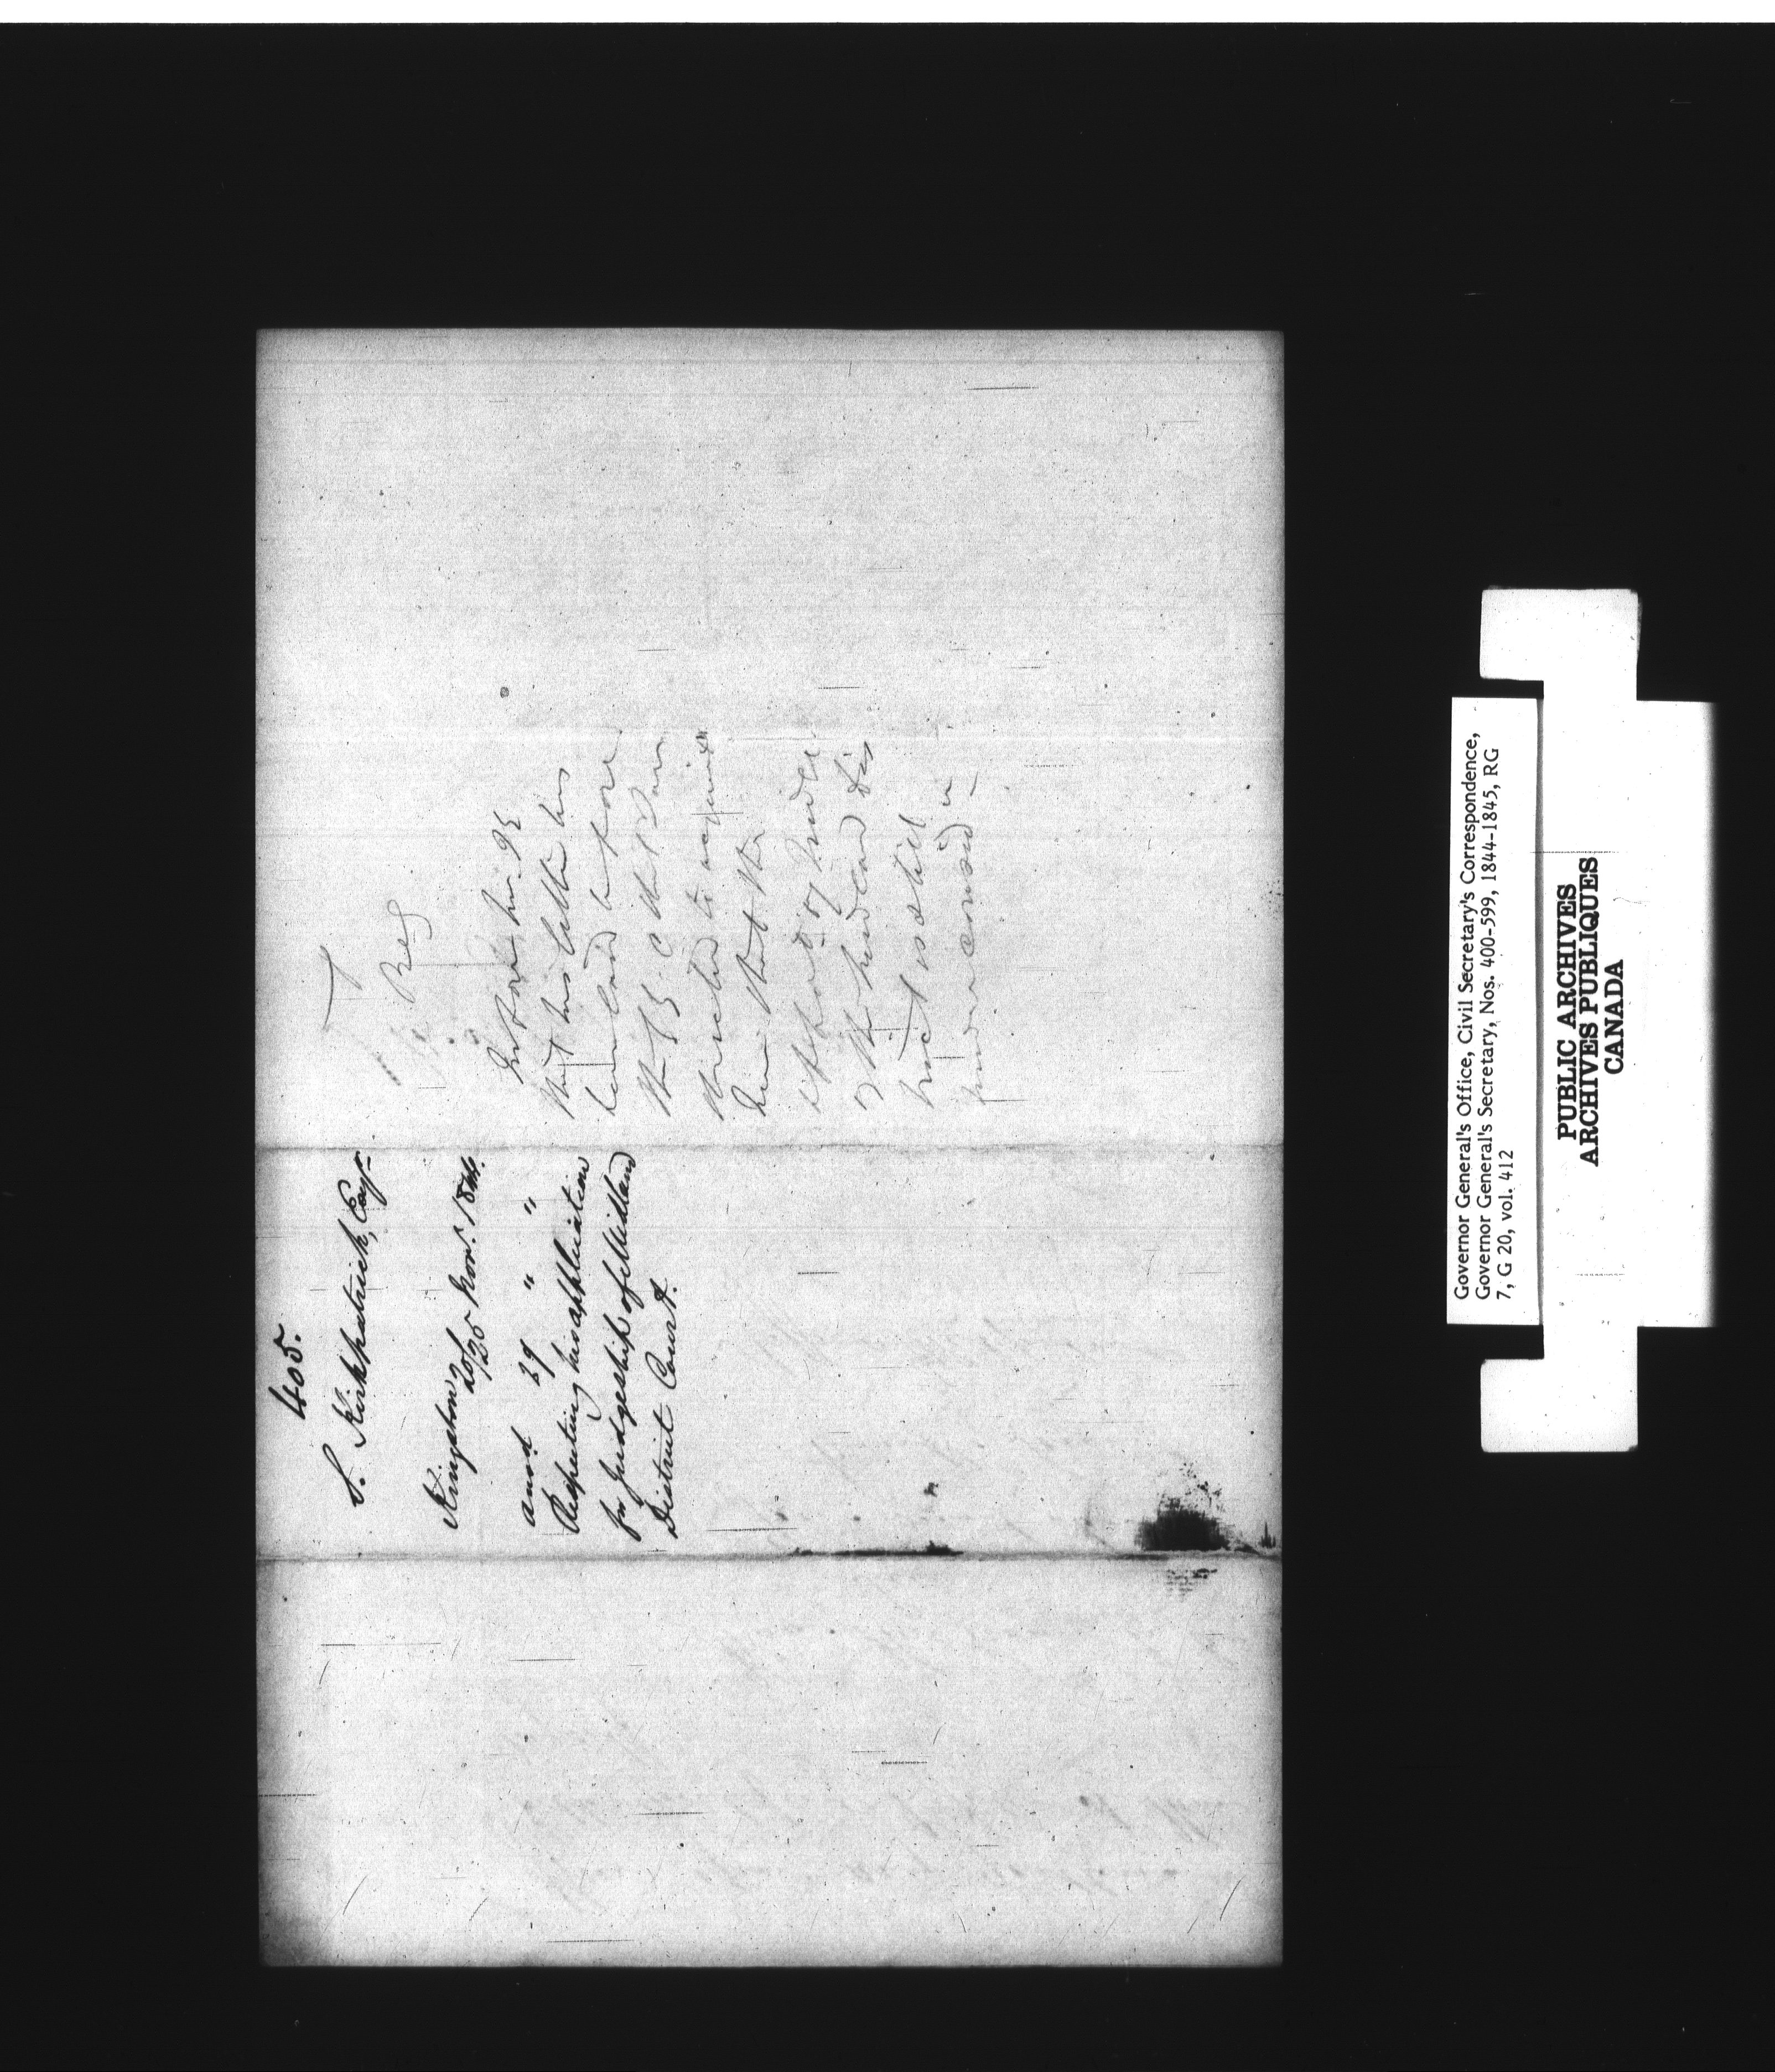 405.
S. Kirkpatrick, Esqr
Kingston
20/25 Novr. 1844.
ansd 29 " "
Respecting his application
for Judgeship of Midland
District Court.
Inform him
that his letter has
been laid before
the G. G. & that I am
directed to acquaint
him that the
app of Judge
of the Midland Dis
trict is still
under consid
Governor General's Office, Civil Secretary's Correspondence,
Governor General's Secretary, Nos. 400-599, 1844-1845, RG
7, G 20, vol. 412
PUBLIC ARCHIVES
ARCHIVES PUBLIQUES
CANADA